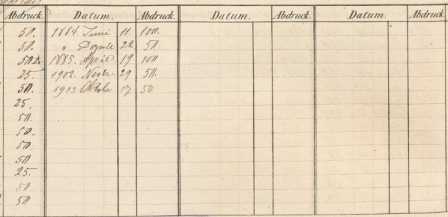 Abdruck. Datum. Abdruck. Datum. Abdruck. Datum. Abdruck.
50. 1884. Juni 11. 100.
50. " 22. 50
1885. April 19 100
25 1902. 29 50.
50. 1903 Oktobr 17 50
25.
50.
50.
50
50
25.
50
50